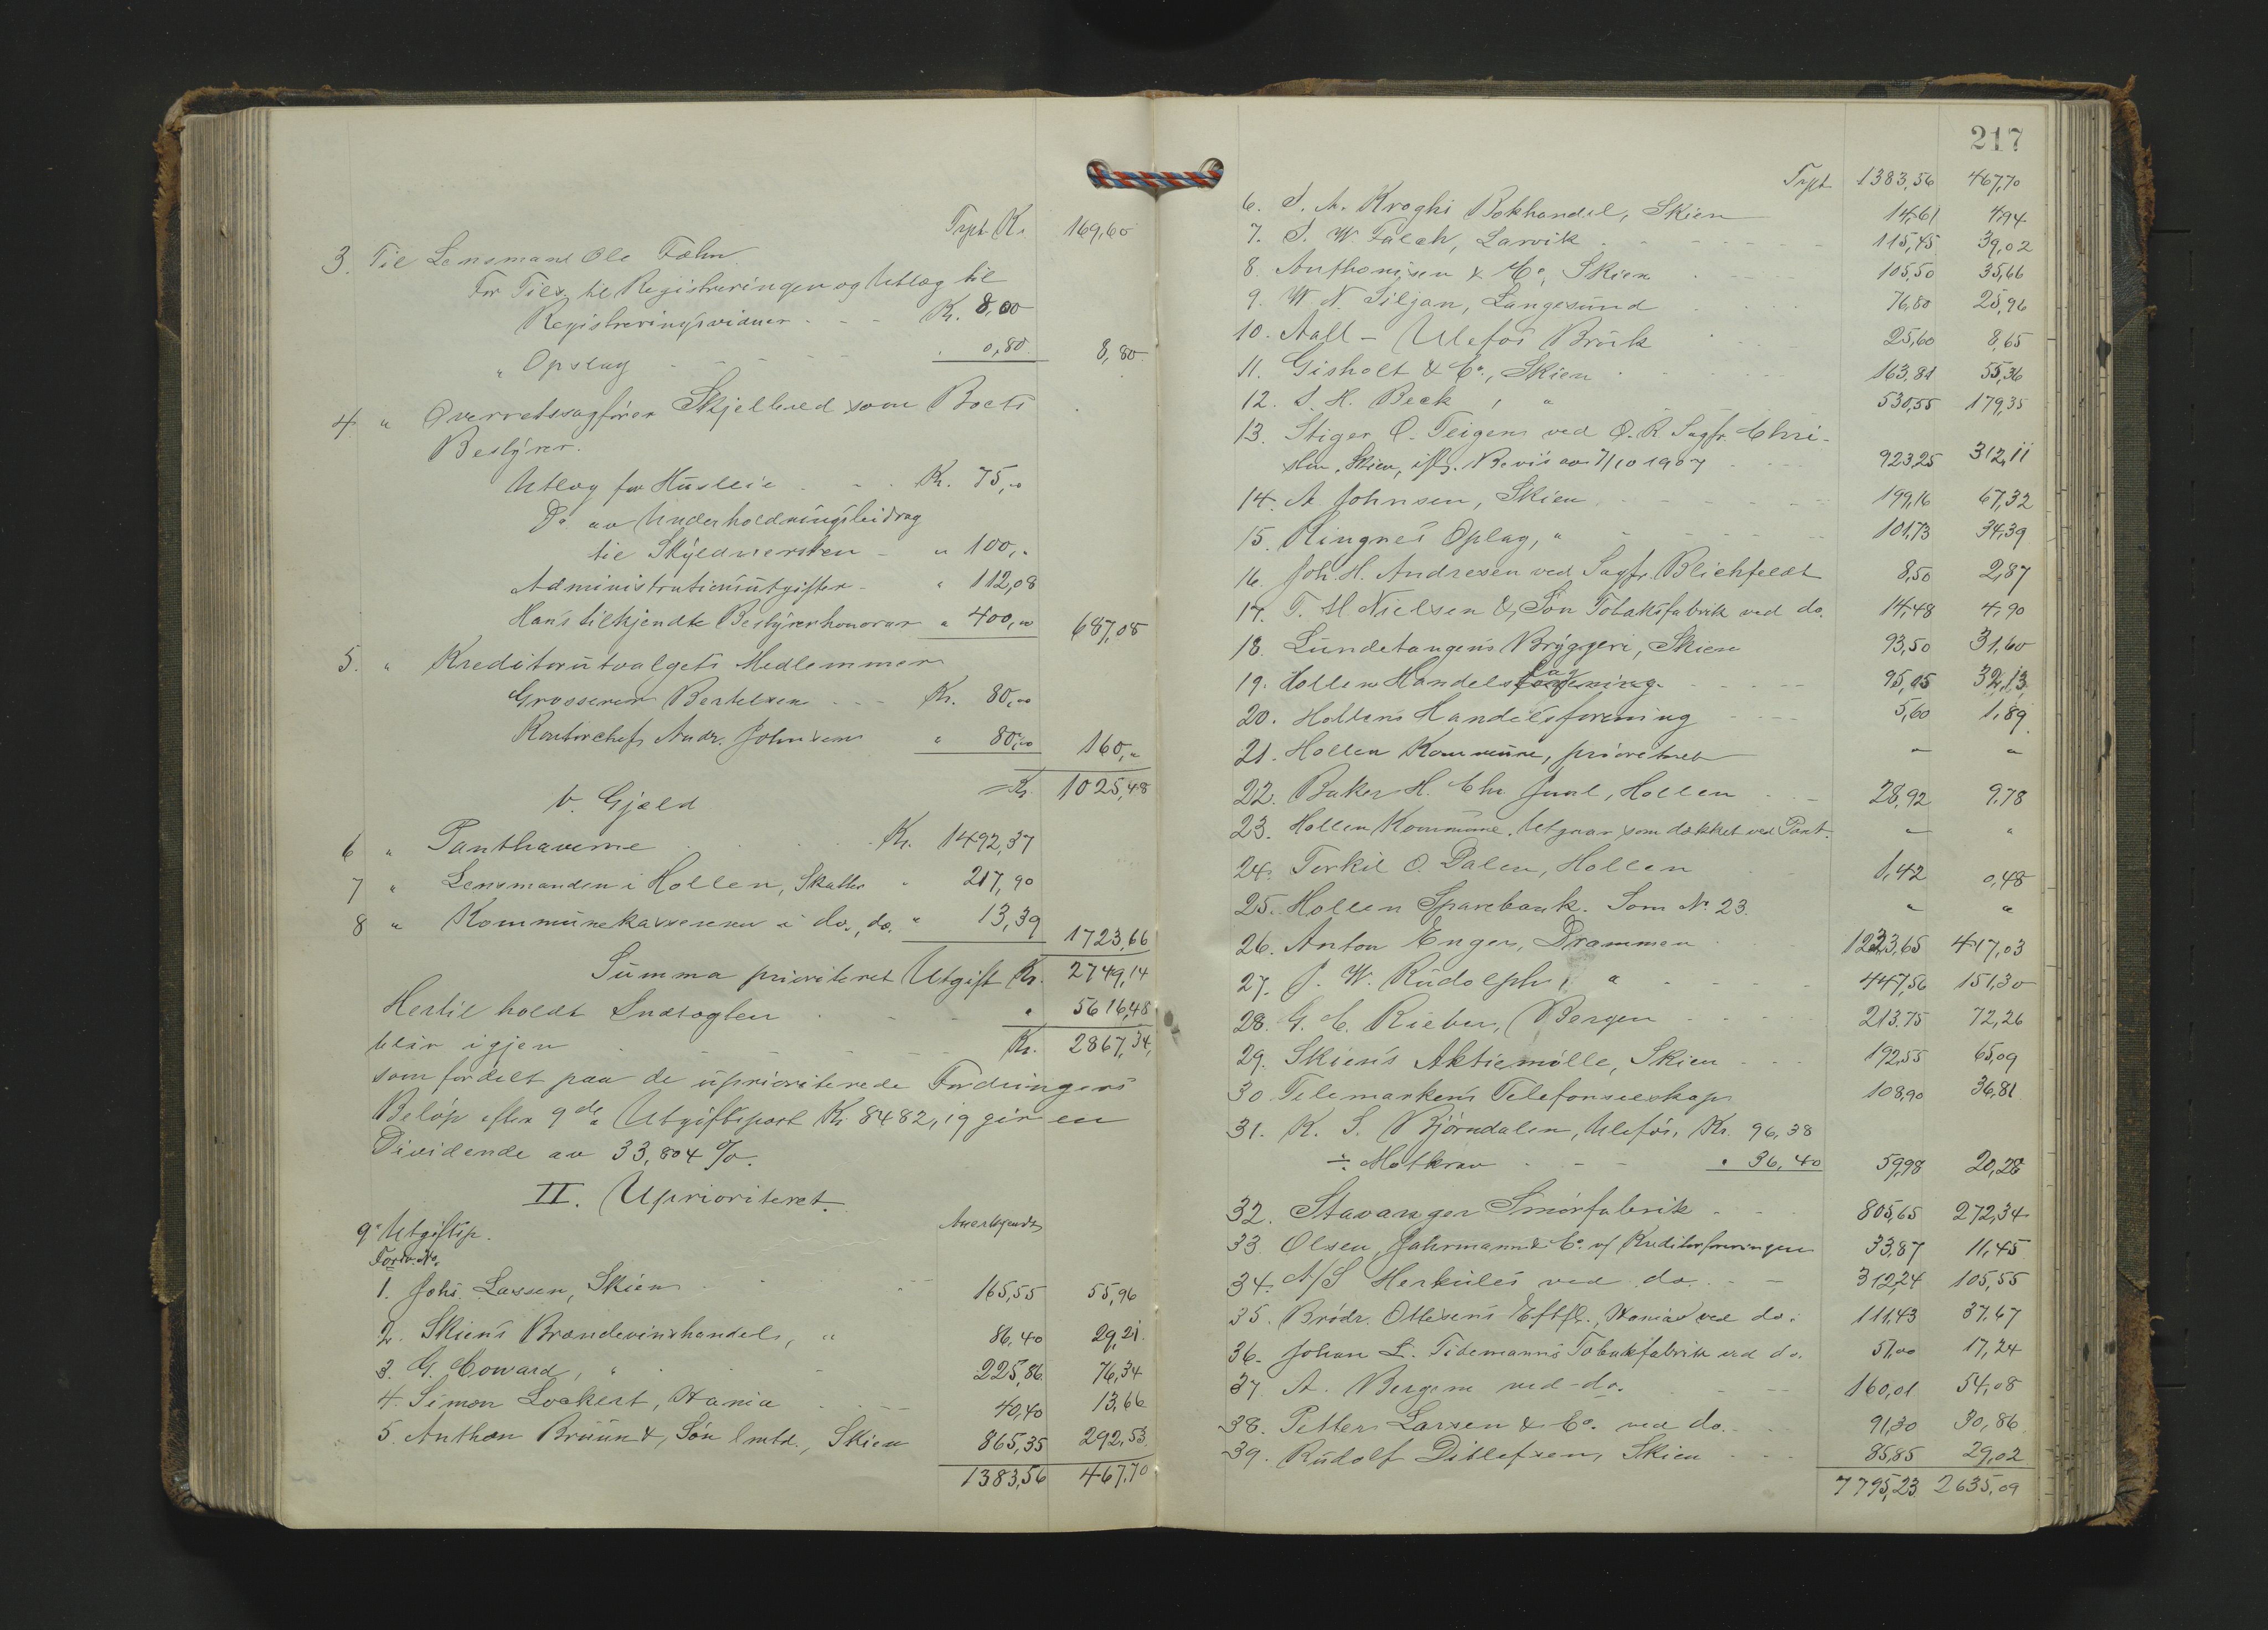 Trpt. Kr. 169,60
3. Til Lensmand Ole Fæhn
For Tils. til Registreringen og Utlæg til
Registreringsvidner - - Kr. 8,00
" Opslag - - - " 0,80 8,80
4 " Overretssagfører Skjelbred som Boets
Bestyrer.
Utlæg for Husleie - - Kr. 75,00
Do av Underholdningsbeidrag
til Skyldneren - " 100,"
Administrationsutgifter - " 112,08
Hans tilkjendte Bestyrerhonorar " 400,00 687,08
5. " Kreditorutvalgets Medlemmer
Grosserer Bertelsen - - Kr. 80,00
Kontorchef Andr. Johnsen " 80,00 160,"
Kr. 1025,48
b. Gjæld
6 " Panthaverne Kr. 1492,37
7 " Lensmanden i Hollen, Skatter " 217,90
8 " Kommunekassereren i do., do. " 13,39 1723,66
Summa prioritert Utgift Kr. 2749,14
Hertil holdt Indtægten " 5616,48
blir igjen Kr. 2867,34
som fordelt paa de uprioriterede Fordringers
Beløp efter 9de Utgiftspost Kr. 8482,19 gir en
Dividende av 33,804 %.
II. Uprioriteret.
9. Utgiftsp. Anerkjendt
Fordr. No.
1. Johs. Lassen, Skien 165,55 55,96
2. Skiens Brændevinshandel, " 86,40 29,21
3. G. Coward, " 225,86 76,34
4. Simon Lockert, Xania 40,40 13,66
5. Anthon Bruun & Søn lmtd., Skien 865,35 292,53
1383,56 467,70
217
Trpt 1383,56 467,70
6. S. A. Kroghs Bokhandel, Skien 14,61 4,94
7. S. W. Falck, Larvik 115,45 39,02
8. Anthonisen & Co, Skien 105,50 35,66
9. W. N. Siljan, Langesund 76,80 25,96
10. Aall - Ulefos Bruk 25,60 8,65
11. Gisholt & Co., Skien 163,81 55,36
12. S. H. Beck, " 530,55 179,35
13. Stiger O. Teigen ved O. R. Sagfr. Chri-
sten, Skien, ifg. Bevis av 7/10 1907 923,25 312,11
14. A. Johnsen, Skien 199,16 67,32
15. Ringnes Oplag, " 101,73 34,39
16. Joh. H. Andresen ved Sagfr. Blichfeldt 8,50 2,87
17. T. M. Nielsen & Søn Tobaksfabrik ved do. 14,48 4,90
18. Lundetangens Bryggeri, Skien 93,50 31,60
19. Hollen Handelslag 95,05 32,13
20. Hollens Handelsforening 5,60 1,89
21. Hollen Kommune, prioriteret " "
22. Baker H. Chr. Juul, Hollen 28,92 9,78
23. Hollen Kommune. Utgaar som dækket ved Pant. " "
24. Terkil O. Dalen, Hollen 1,42 0,48
25. Hollen Sparebank. Som No. 23. " "
26. Anton Enger, Drammen 1233,65 417,03
27. J. W. Rudolph, " 447,56 151,30
28. G. C. Rieber, Bergen 213,75 72,26
29. Skiens Aktiemølle, Skien 192,55 65,09
30. Telemarkens Telefonselskap 108,90 36,81
31. K. S. Bjørndalen, Ulefos, Kr. 96,38
÷ Motkrav - - " 36,40 59,98 20,28
32. Stavanger Smørfabrik 805,65 272,34
33. Olsen, Jahrmann & Co. v/ Kreditorforeningen 33,87 11,45
34. A/S Herkules ved do. 312,24 105,55
35. Brødr. Ottesens Eftflg., Xania ved do. 111,43 37,67
36. Johan L. Tidemanns Tobakfabrik ved do. 51,00 17,24
37. A. Bergene ved do. 160,01 54,08
38. Petter Larsen & Co. ved do. 91,30 30,86
39. Rudolf Ditlefsen, Skien 85,85 29,02
7795,23 2635,09